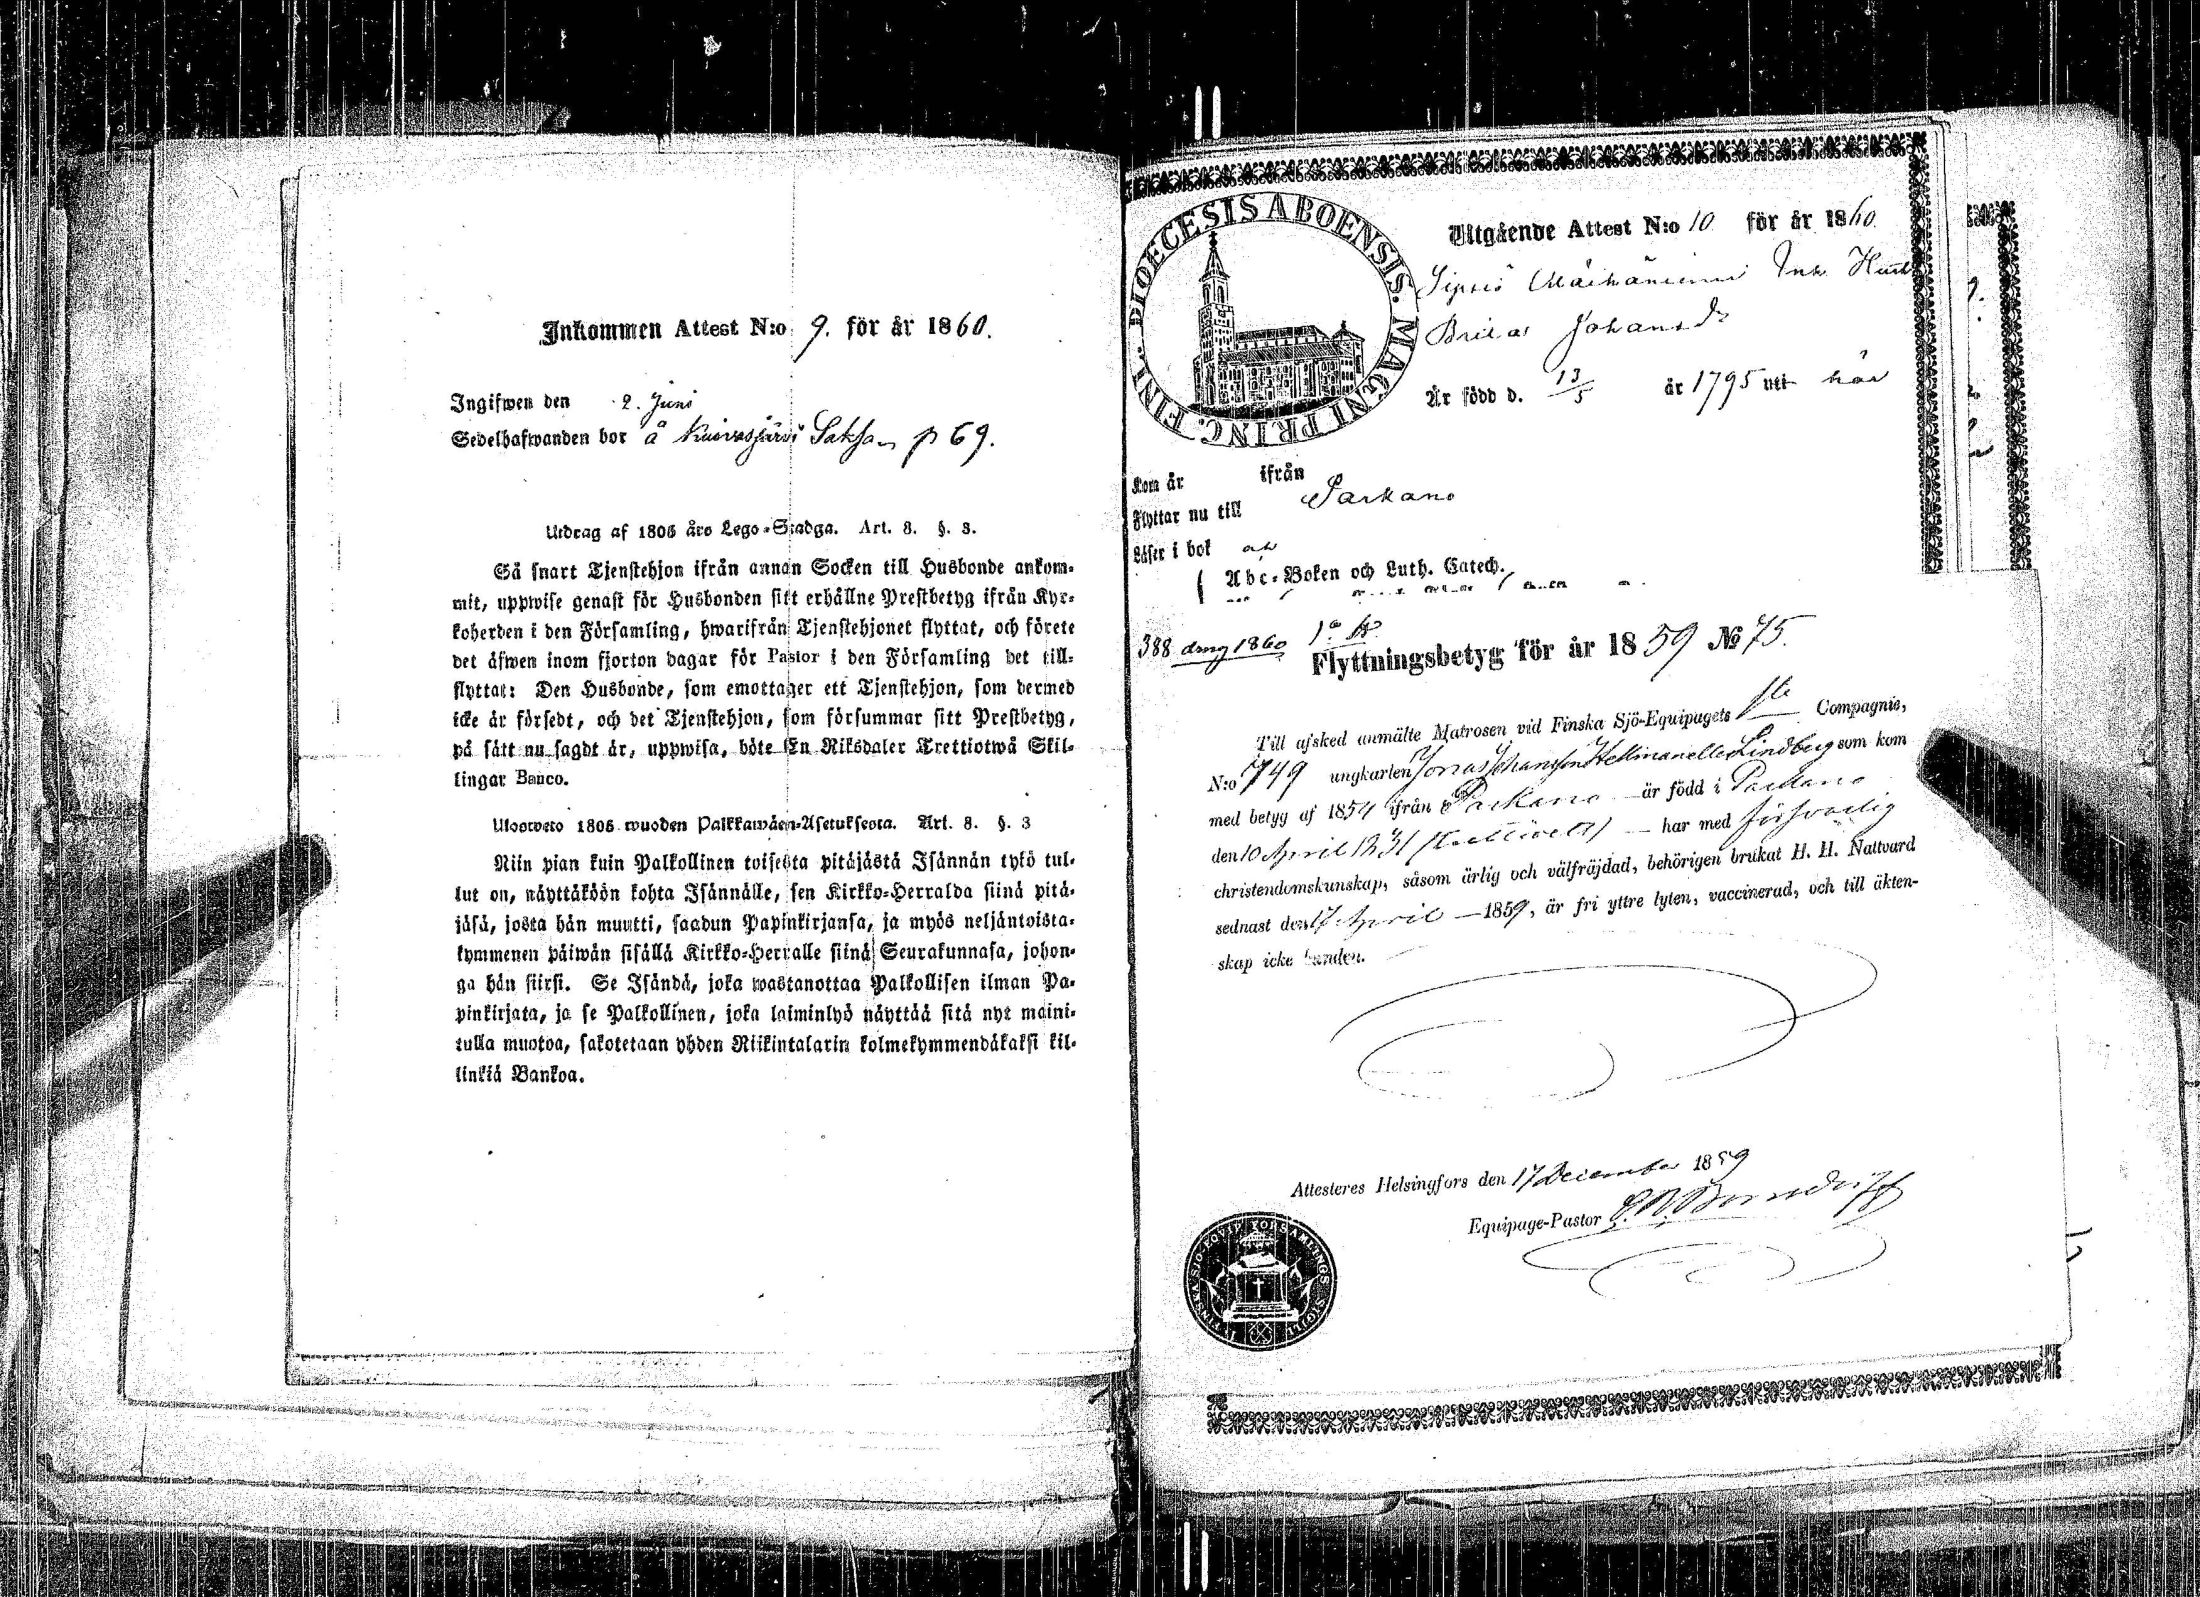 Inkommen Attest N:o 9. för år 1860.
Ingifwen den 2. Juni
Sedelhafwanden bor å Kuivasjärvi p 69.
Utdrag af 1805 års Lego-Stadga. Art. 8. §. 3.
Så snart Tjenstehjon ifrån annan Socken till Husbonde ankom-
mit, uppwise genast för Husbonden sitt erhållne Prestbetyg ifrån Kyr-
koherden i den Församling, hwarifrån Tjenstehjonet flyttat, och förete
det äfwen inom fjorton dagar för Pastor i den Församling det till-
flyttat: Den Husbonde, som emottager ett Tjenstehjon, som dermed
icke är försedt, och det Tjenstehjon, som försummar sitt Prestbetyg,
på sätt nu sagdt är, uppwisa, böte En Riksdaler Trettiotwå Skil-
lingar Banco.
Ulosweto 1805 wuoden Palkkawäen-Asetuksesta. Art. 8. §. 3
Niin pian kuin Palkollinen toisesta pitäjästä Isännän tykö tul-
lut on, näyttäköön kohta Isännälle, sen Kirkko-Herralda siinä pitä-
jäsä, josta hän muutti, saadun Papinkirjansa, ja myös neljäntoista-
kymmenen päiwän sisällä Kirkko-Herralle siinä Seurakunnasa, johon-
ga hän siirsi. Se Isändä, joka wastanottaa Palkollisen ilman Pa-
pinkirjata, ja se Palkollinen, joka laiminlyö näyttää sitä nyt maini-
tulla muotoa, sakotetaan yhden Riikintalarin kolmekymmendäkaksi kil-
linkiä Bankoa.
DIOECESIS ABOENSIS. MAGNI PRINC. FINL.
Utgående Attest N:o 10 för år 1860
Sipsiö Inh
Johansdr
Är född d. 13/5 år 1795 uti här
Kom år ifrån
Flyttar nu till Parkano
Läser i bok
Abc-Boken och Luth. Catech.
388 1860
Flyttningsbetyg för år 1859 No 75.
Till afsked anmälte Matrosen vid Finska Sjö-Equipagets 1ste Compagnie,
N:o 749 ungkarlen Jonas Johansson Hellman eller Lindberg som kom
med betyg af 1854 ifrån Parkano är född i Parkano
den 10 April 1831 har med försvarlig
christendomskunskap, såsom ärlig och välfräjdad, behörigen brukat H. H. Nattvard
sednast den 17 April 1859, är fri yttre lyten, vaccinerad, och till äkten-
skap icke bunden.
Attesteres Helsingfors den 17 December 1859
Equipage-Pastor
FINSKA SJÖ-EQVIP. FÖRSAMLINGS SIGILL